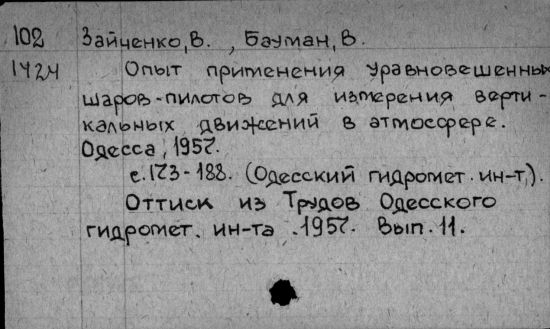 102 Зайченко, В. , Бауман, В.
1424 Опыт применения уравновешенных
шаров-пилотов для измерения верти-
кальных движений в атмосфере.
Одесса, 1957.
с. 173-188. (Одесский гидромет. ин-т).
Оттиск из Трудов Одесского
гидромет. ин-та. 1957. Вып. 11.